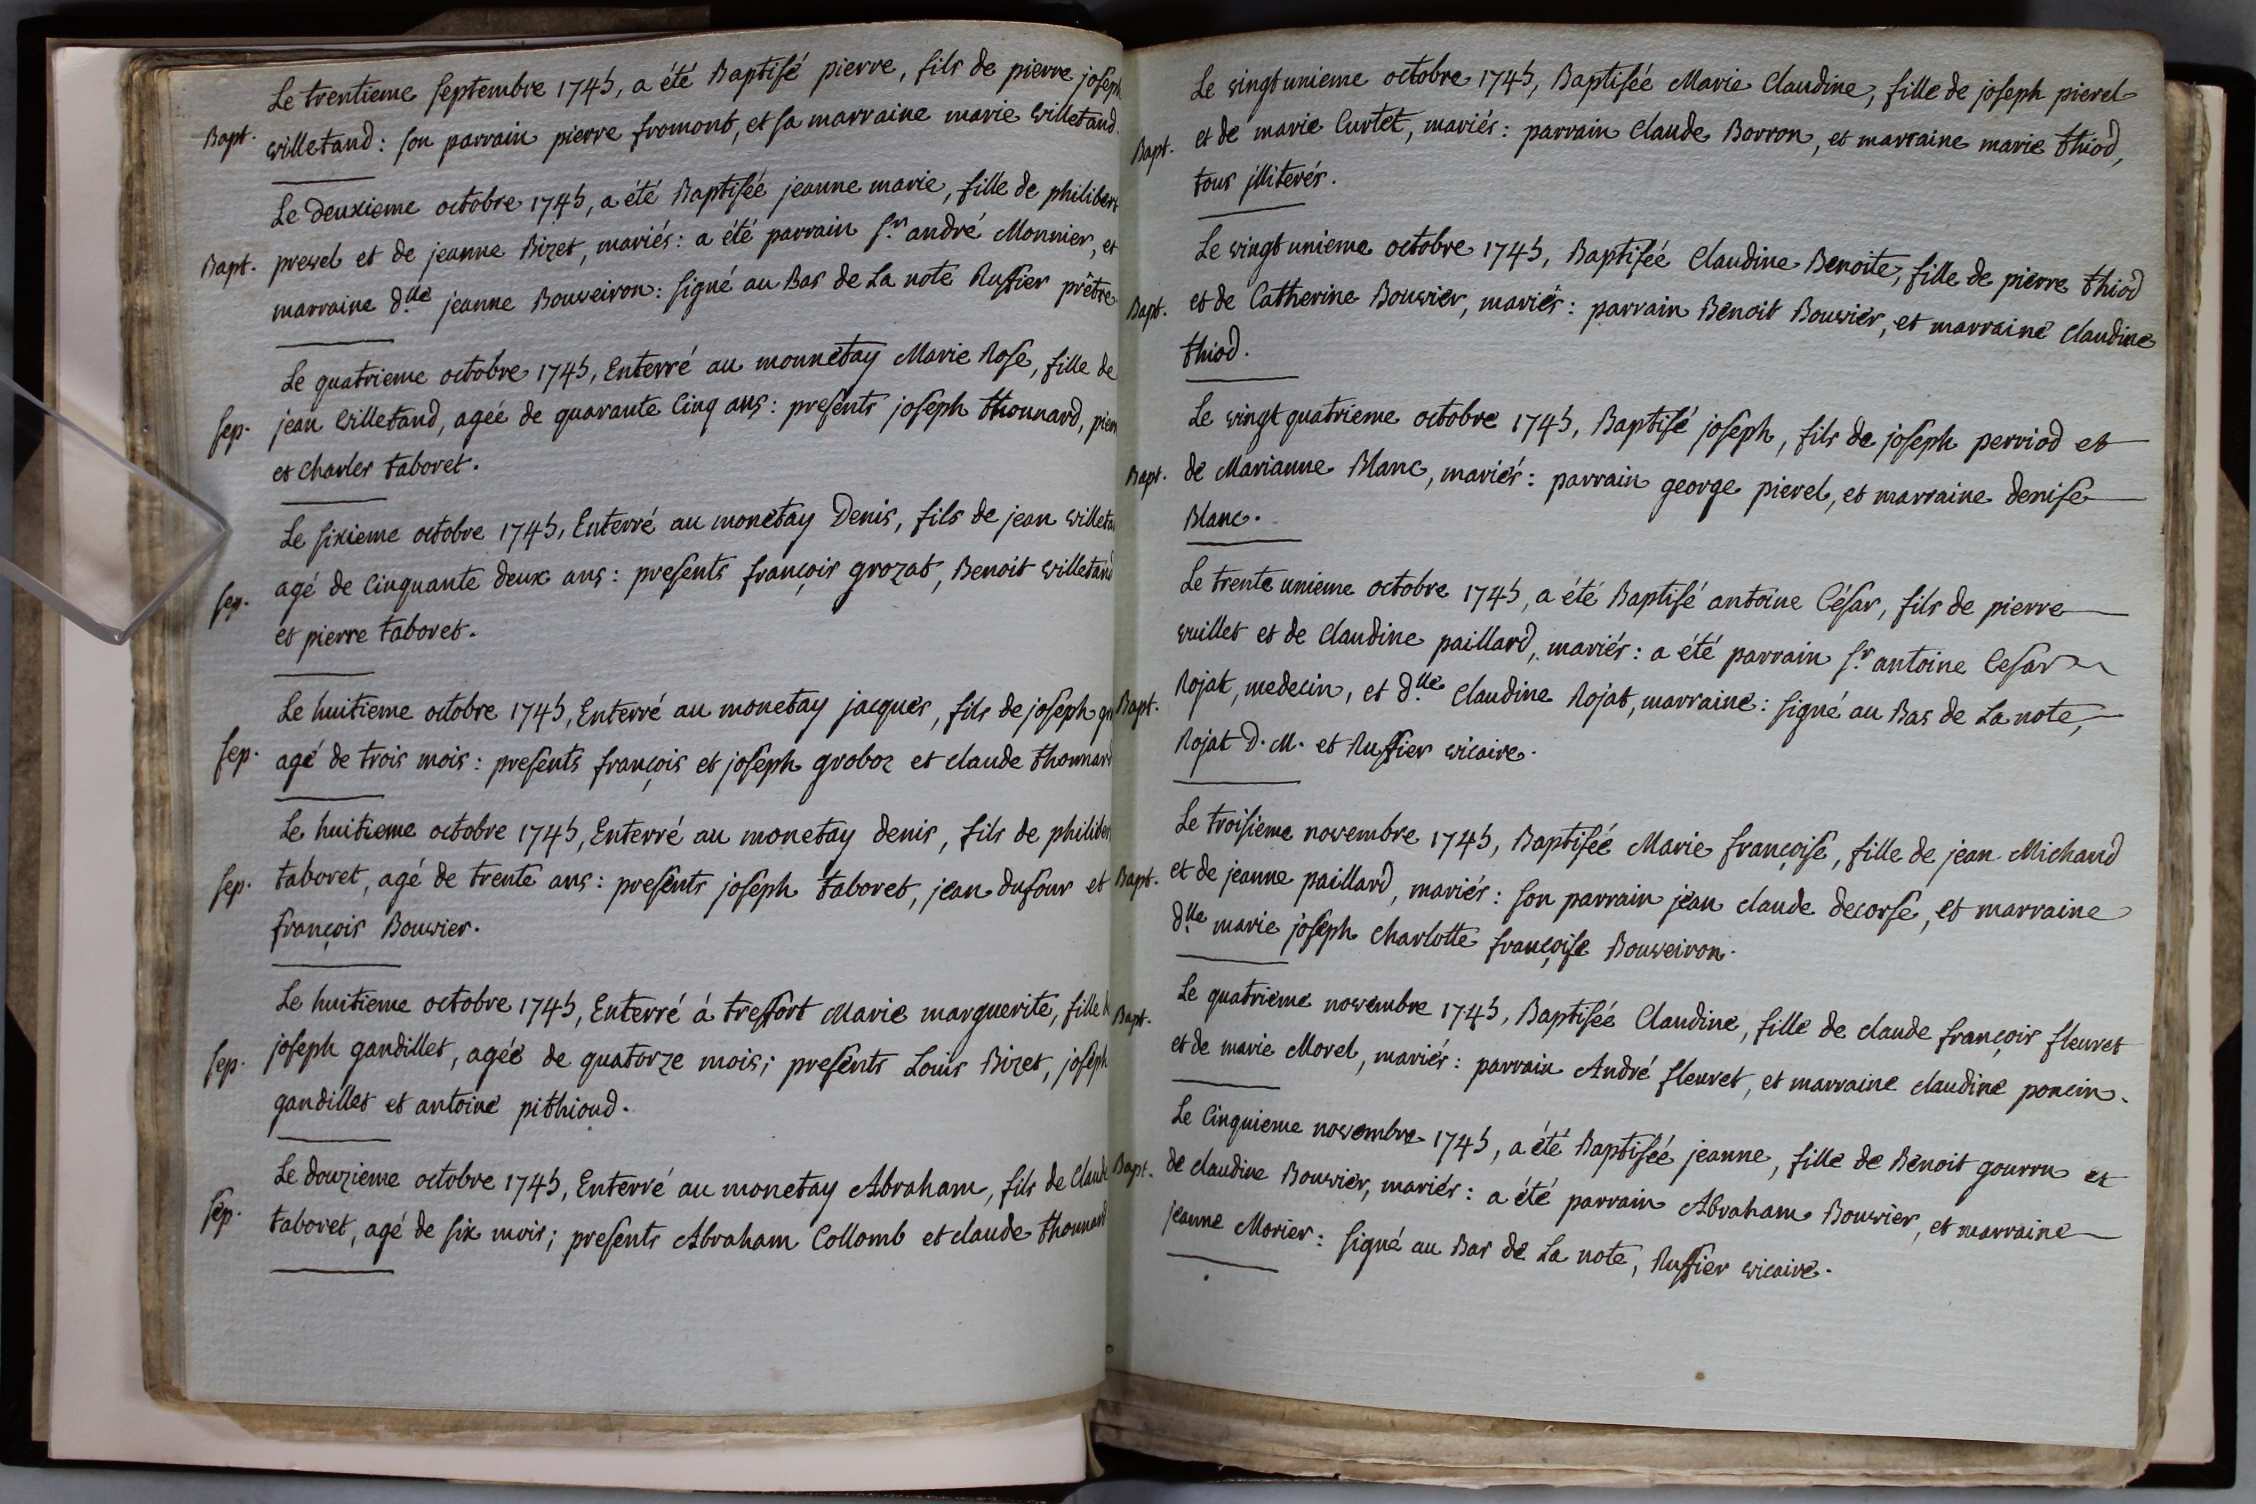 Le trentieme septembre 1745, a été Baptisé pierre, fils de pierre joseph
Bapt. villetand: son parrain pierre fromont, et sa marraine marie villetand.
Le deuxieme octobre 1745, a été Baptisée jeanne marie, fille de philibert
Bapt. prevel et de jeanne Bizet, mariés: a été parrain Sr. andré Monnier, et
marraine dlle. jeanne Bouveiron: signé au Bas de La note Ruffier prêtre
Le quatrieme octobre 1745, Enterré au monnetay Marie Rose, fille de
sep. jean villetand, ageé de quarante Cinq ans: presents joseph thounard,
et Charles taboret.
Le sixieme octobre 1745, Enterré au monetay Denis, fils de jean
sep. agé de Cinquante deux ans: presents françois grozat, Benoit villetand
et pierre taboret.
Le huitieme octobre 1745, Enterré au monetay jacques, fils de joseph
sep. agé de trois mois: presents françois et joseph groboz et claude thounard
Le huitieme octobre 1745, Enterré au monetay denis, fils de philibert
sep. taboret, agé de trente ans: presents joseph taboret, jean dufour et
françois Bouvier.
Le huitieme octobre 1745, Enterré á treffort Marie marguerite, fille
sep. joseph gandillet, agée de quatorze mois; presents Louis Bizet, joseph
gandillet et antoine pithioud.
Le douzieme octobre 1745, Enterré au monetay Abraham, fils de Claude
sep. taboret, agé de six mois; presents Abraham Collomb et claude thounard
Le vingt unieme octobre 1745, Baptisée Marie Claudine, fille de joseph pierel
Bapt. et de marie Curtet, mariés: parrain Claude Borron, et marraine marie thiod,
tous jlliterés.
Le vingt unieme octobre 1745, Baptisée Claudine Benoite, fille de pierre thiod
Bapt. et de Catherine Bouvier, mariés: parrain Benoit Bouvier, et marraine claudine
thiod.
Le vingt quatrieme octobre 1745, Baptisé joseph, fils de joseph perriod et
Bapt. de Marianne Blanc, mariés: parrain george pierel, et marraine denise
Blanc.
Le trente unieme octobre 1745, a été Baptisé antoine César, fils de pierre
vuillet et de Claudine paillard, mariés: a été parrain Sr. antoine Cesar
Bapt. Rojat, medecin, et dlle. Claudine Rojat, marraine: signé au Bas de La note,
Rojat D. M. et Ruffier vicaire.
Le troisieme novembre 1745, Baptisée Marie françoise, fille de jean Michaud
Bapt. et de jeanne paillard, mariés: son parrain jean claude decorse, et marraine
dlle. marie joseph charlotte françoise Bouveiron.
Le quatrieme novembre 1745, Baptisée Claudine, fille de claude françois fleuret
Bapt. et de marie Morel, mariés: parrain André fleuret, et marraine claudine poncin.
Le Cinquieme novembre 1745, a été Baptisée jeanne, fille de Benoit gourru et
Bapt. de claudine Bouvier, mariés: a été parrain Abraham Bouvier, et marraine
jeanne Morier: signé au Bas de La note, Ruffier vicaire.